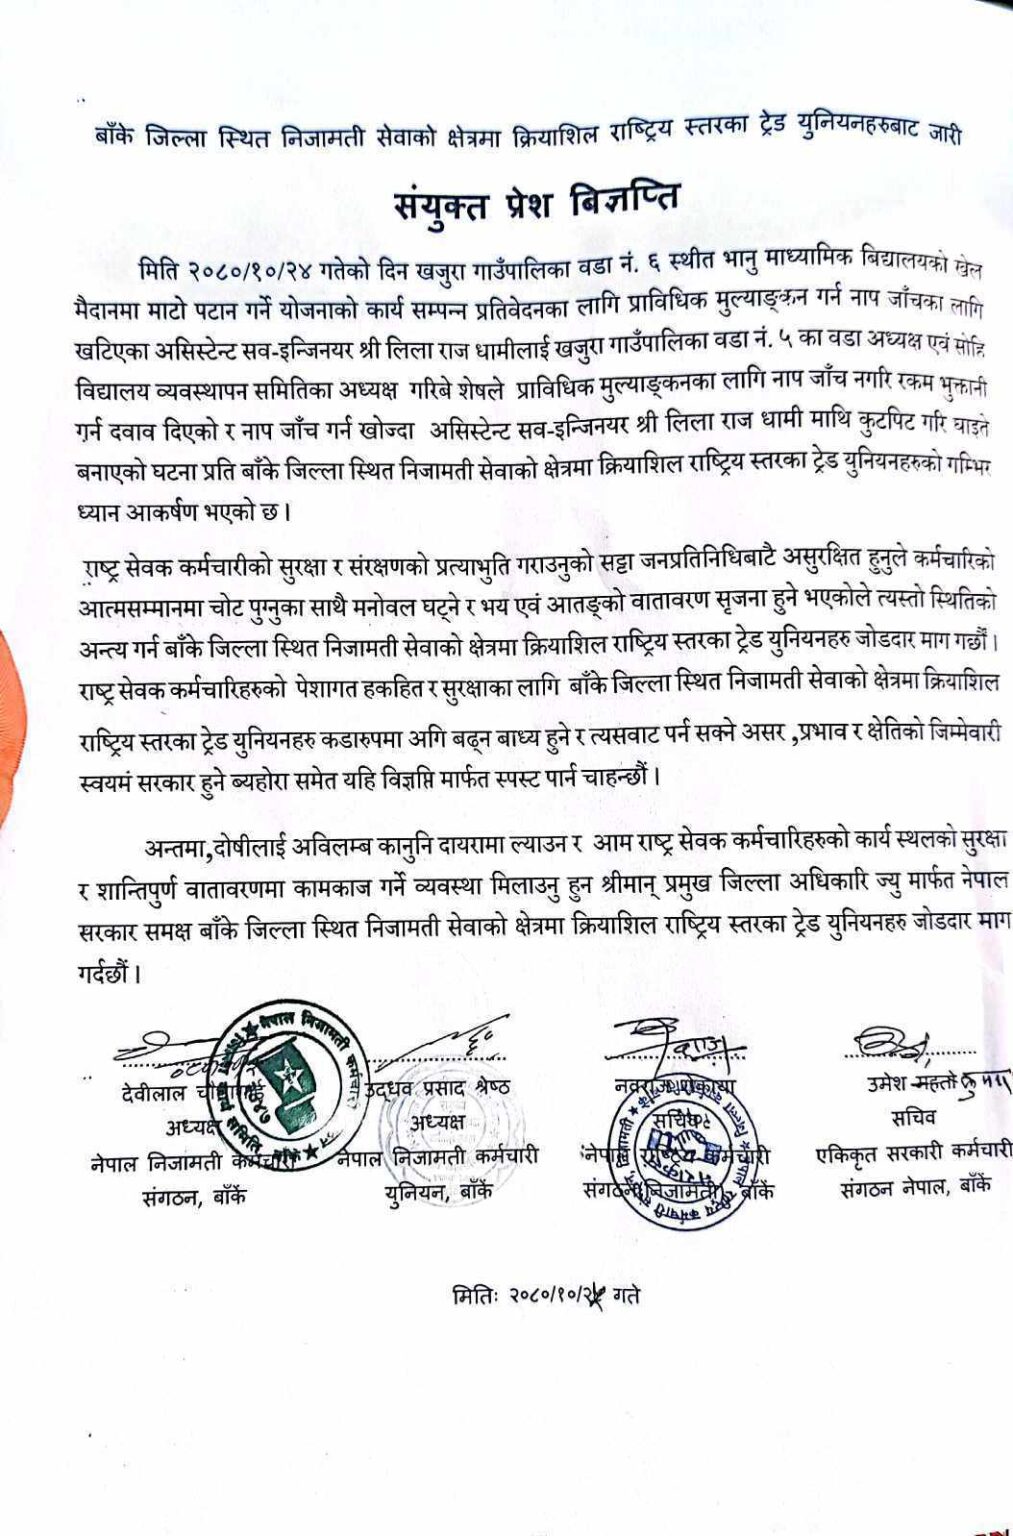 बाँके जिल्ला स्थित निजामती सेवाको क्षेत्रमा क्रियाशिल राष्ट्रिय स्तरका ट्रेड युनियनहरुबाट जारी
संयुक्त प्रेश बिज्ञप्ति
मिति २०८०/१०/२४ गतेको दिन खजुरा गाउँपालिका वडा नं. ६ स्थीत भानु माध्यामिक बिद्यालयको खेल
मैदानमा माटो पटान गर्ने योजनाको कार्य सम्पन्न प्रतिवेदनका लागि प्राविधिक मुल्याङ्कन गर्न नाप जाँचका लागि
खटिएका असिस्टेन्ट सव-इन्जिनयर श्री लिला राज धामीलाई खजुरा गाउँपालिका वडा नं. ५ का वडा अध्यक्ष एवं सोहि
विद्यालय व्यवस्थापन समितिका अध्यक्ष गरिबे शेषले प्राविधिक मुल्याङ्कनका लागि नाप जाँच नगरि रकम भुक्तानी
गर्न दवाव दिएको र नाप जाँच गर्न खोज्दा असिस्टेन्ट सव-इन्जिनयर श्री लिला राज धामी माथि कुटपिट गरि घाइते
बनाएको घटना प्रति बाँके जिल्ला स्थित निजामती सेवाको क्षेत्रमा क्रियाशिल राष्ट्रिय स्तरका ट्रेड युनियनहरुको गम्भिर
ध्यान आकर्षण भएको छ ।
राष्ट्र सेवक कर्मचारीको सुरक्षा र संरक्षणको प्रत्याभुति गराउनुको सट्टा जनप्रतिनिधिबाटै असुरक्षित हुनुले कर्मचारिको
आत्मसम्मानमा चोट पुग्नुका साथै मनोवल घट्ने र भय एवं आतङ्को वातावरण सृजना हुने भएकोले त्यस्तो स्थितिको
अन्त्य गर्न बाँके जिल्ला स्थित निजामती सेवाको क्षेत्रमा क्रियाशिल राष्ट्रिय स्तरका ट्रेड युनियनहरु जोडदार माग गर्छौं ।
राष्ट्र सेवक कर्मचारिहरुको पेशागत हकहित र सुरक्षाका लागि बाँके जिल्ला स्थित निजामती सेवाको क्षेत्रमा क्रियाशिल
राष्ट्रिय स्तरका ट्रेड युनियनहरु कडारुपमा अगि बढ्न बाध्य हुने र त्यसवाट पर्न सक्ने असर ,प्रभाव र क्षेतिको जिम्मेवारी
स्वयमं सरकार हुने ब्यहोरा समेत यहि विज्ञप्ति मार्फत स्पस्ट पार्न चाहन्छौं ।
अन्तमा,दोषीलाई अविलम्ब कानुनि दायरामा ल्याउन र आम राष्ट्र सेवक कर्मचारिहरुको कार्य स्थलको सुरक्षा
र शान्तिपुर्ण वातावरणमा कामकाज गर्ने व्यवस्था मिलाउनु हुन श्रीमान् प्रमुख जिल्ला अधिकारि ज्यु मार्फत नेपाल
सरकार समक्ष बाँके जिल्ला स्थित निजामती सेवाको क्षेत्रमा क्रियाशिल राष्ट्रिय स्तरका ट्रेड युनियनहरु जोडदार माग
गर्दछौं ।
देवीलाल उद्धव प्रसाद श्रेष्ठ नवराज उमेश महतो
अध्यक्ष अध्यक्ष सचिव सचिव
नेपाल निजामती कर्मचारी नेपाल निजामती कर्मचारी नेपाल राष्ट्रिय कर्मचारी एकिकृत सरकारी कर्मचारी
संगठन, बाँकें युनियन, बाँकें संगठन निजामती, बाँकें संगठन नेपाल, बाँकें
मितिः २०८०/१०/२ गते